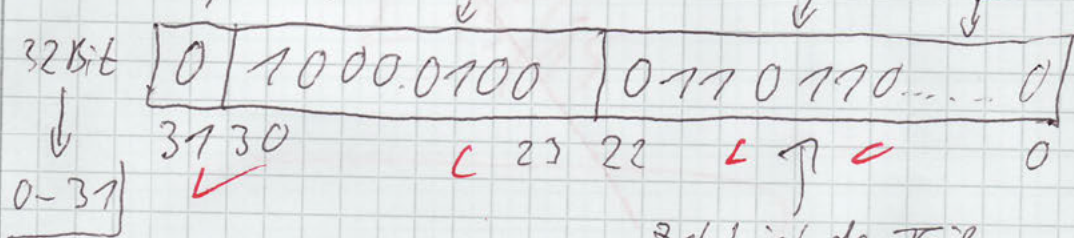 32 Bit 0 1000.0100 0110110...... 0
31 30 23 22 0
0-31